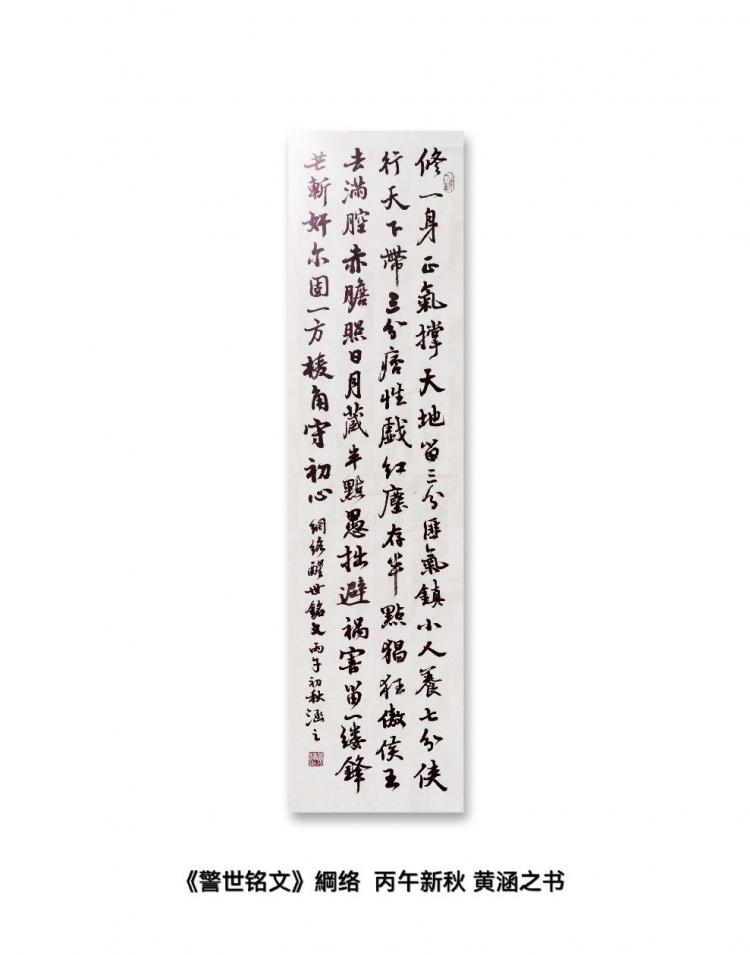 修一身正氣撑天地留三分匪氣鎮小人養七分俠
行天下帶三分痞性戲红塵存半點猖狂傲侯王
去滿腔赤膽照日月藏半點愚拙避禍害留一缕鋒
芒斬奸尔固一方棱角守初心
綱络醒世銘文丙午初秋涵之
《警世铭文》綱络 丙午新秋 黄涵之书